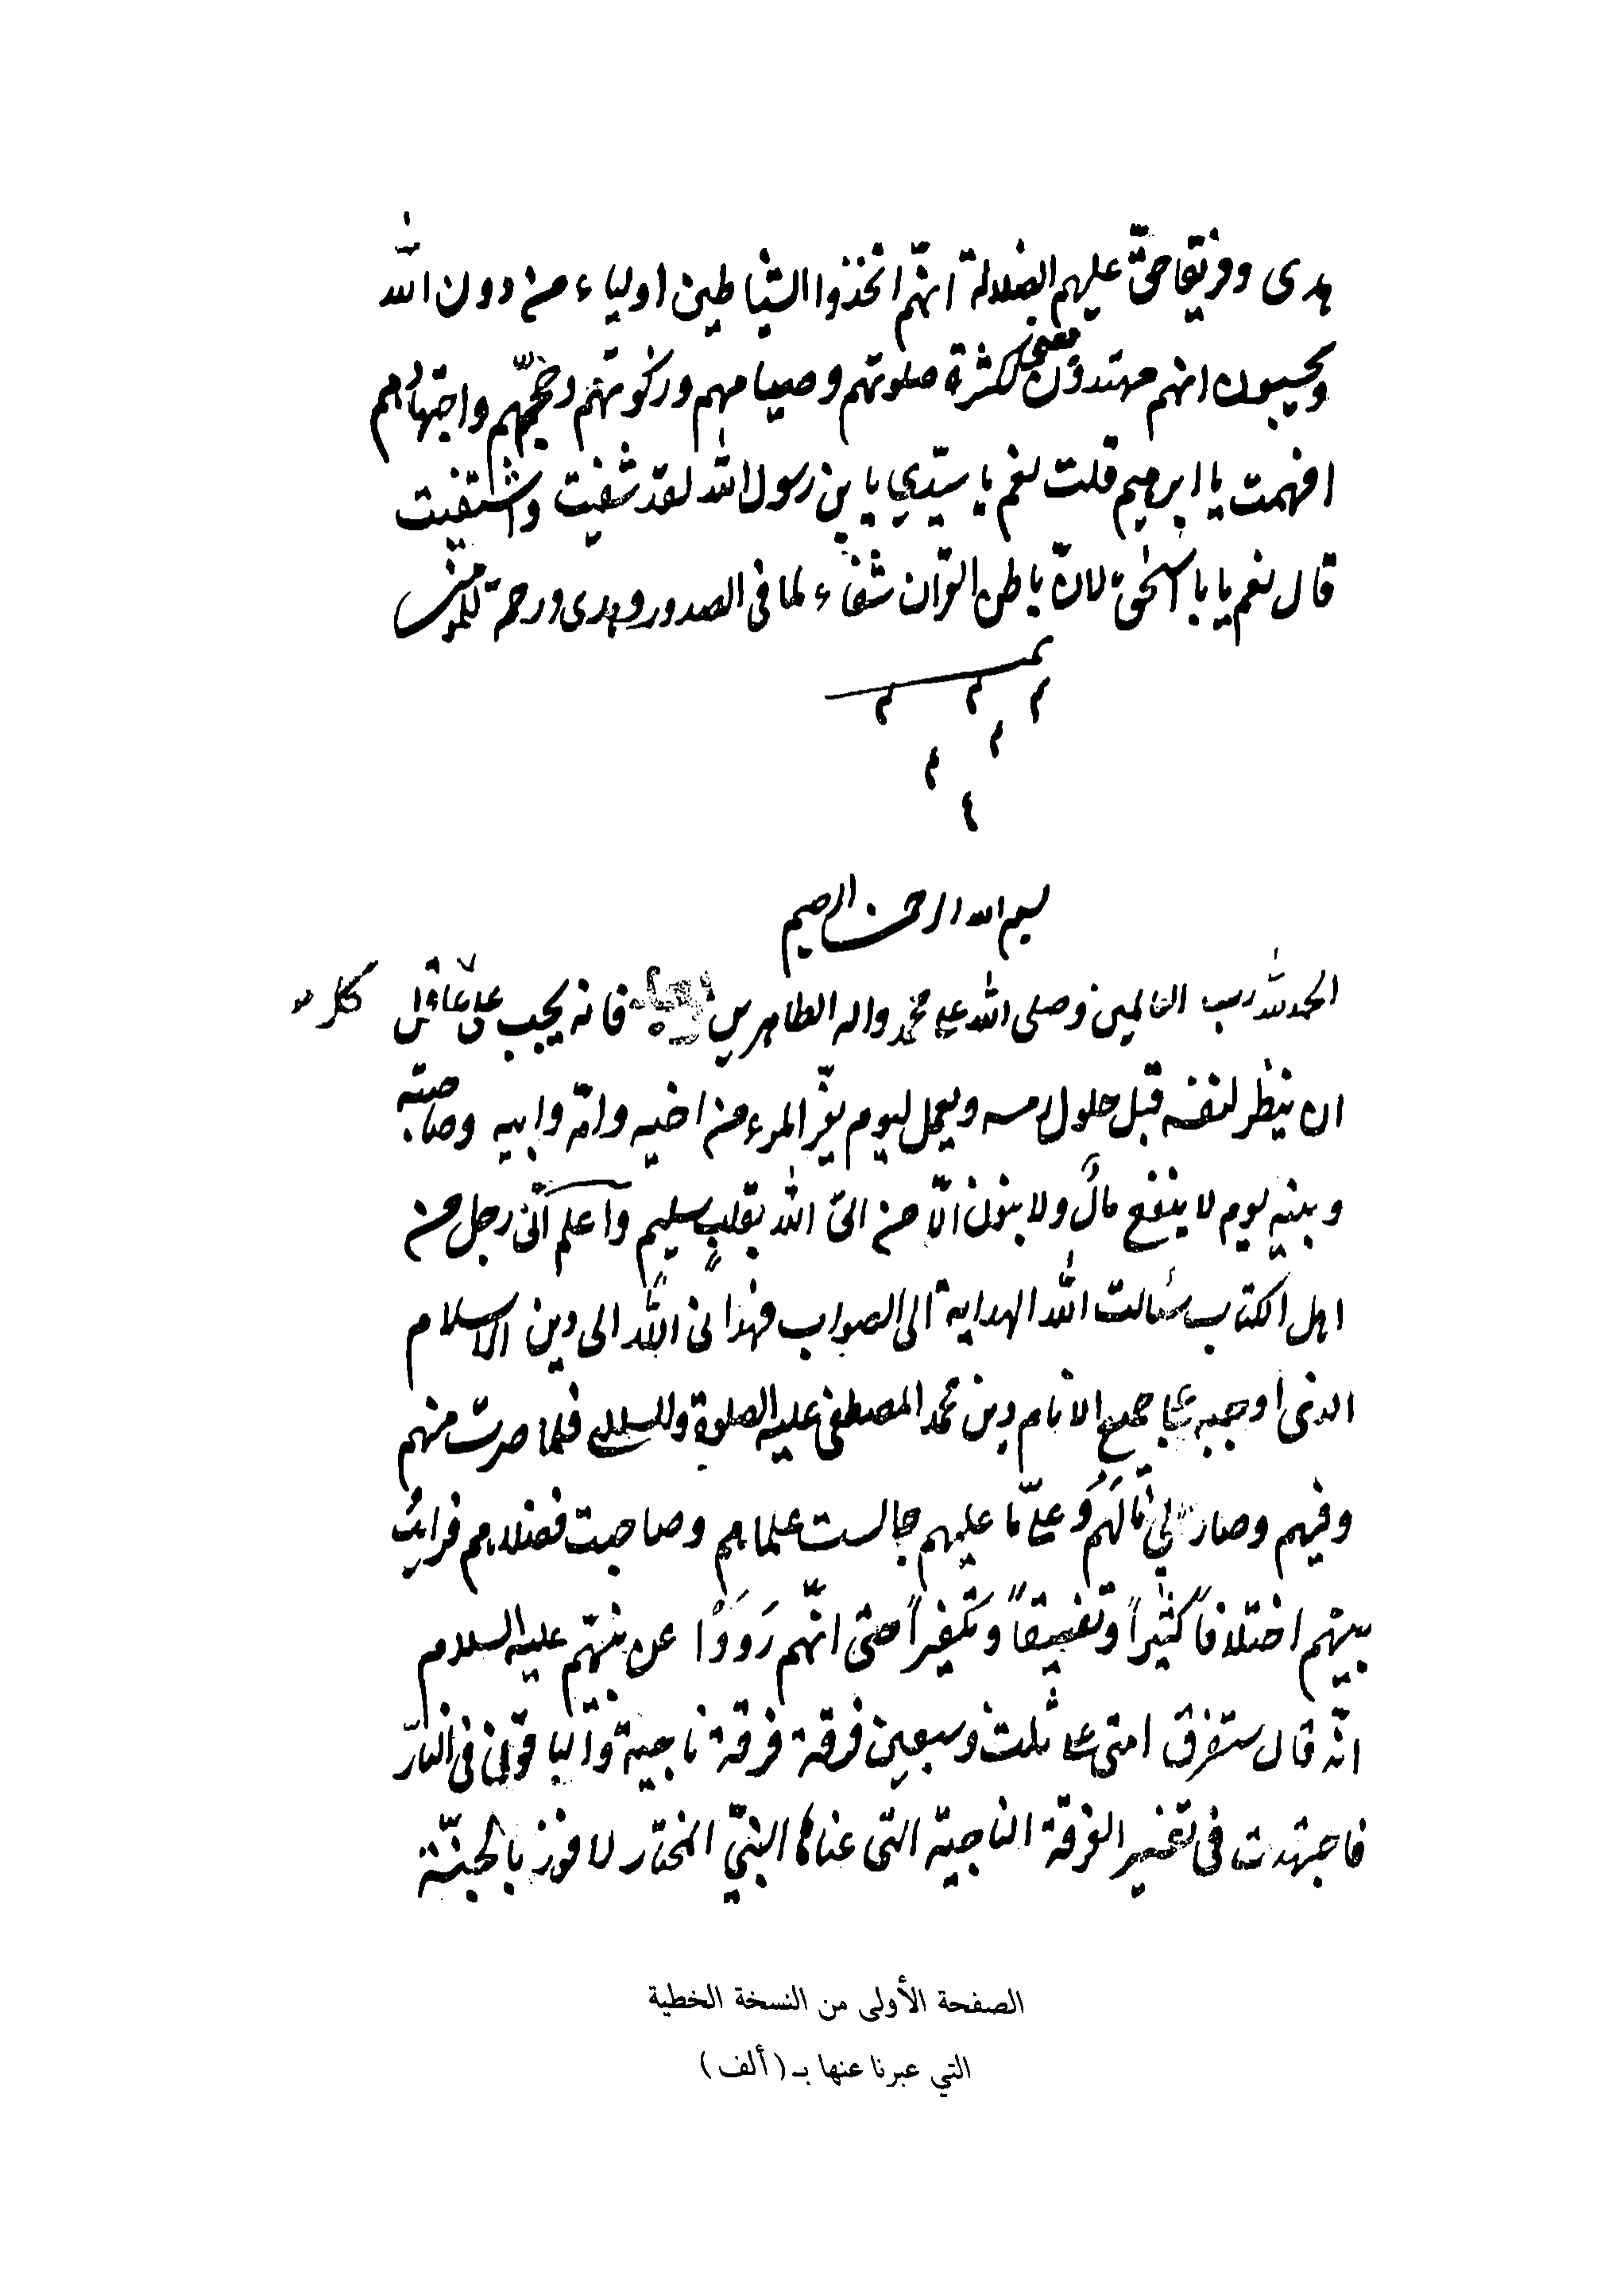 هدى وفريقا حقّ عليهم الضلالة انهّم اتخذوا الشياطين اولياء من دون الله
ويحسبون انهم مهتدون يعنى لكثرة صلوتهم وصيامهم وزكوتهم وحجّهم واجتهادهم
افهمت يا ابرهيم قلت نعم يا سيّدي يا بن رسول الله لقد شفيت واشتفيت
قال نعم يا با اسحٰق لانّ باطن القرآن شفاء لما فى الصدور وهدى ورحمة للمؤمنين
تمت
م م م
م
م
٤
بسم الله الرحمن الرحيم
الحمد لله رب العالمين وصلى الله على محمد واله الطاهرين فانه يجب على عاقل كل
ان ينظر لنفسه قبل حلول رمسه ويعمل ليوم يفرّ المرء من اخيه وامّه وابيه وصاحبته
وبنيه يوم لا ينفع مالٌ ولا بنون الّا من اتى الله بقلبٍ سليمٍ واعلم انّى رجل من
اهل الكتاب سئالت الله الهداية الى الصواب فهدانى الله الى دين الاسلام
الذى اوجبه على جميع الانام دين محمد المصطفى عليه الصلوة والسلام فلما صرت منهم
وفيهم وصار لي مَالَهُم وَ علىّ ما عليهم جالست علماهم وصاحبت فضلاهم فرايت
بينهم اختلافاً كثيراً وتفسيقاً وتكفيراً حتى انّهم رَوَوْا عن نبيّهم عليه السلام
انّه قال ستفرق امتى على ثلث وسبعين فرقة فرقة ناجية والباقون فى النّار
فاجتهدت فى تفسير الفرقة الناجية التى عناها النبيّ المختار لافوز بالجنّة
الصفحة الأولى من النسخة الخطية
التي عبرنا عنها بـ (ألف)